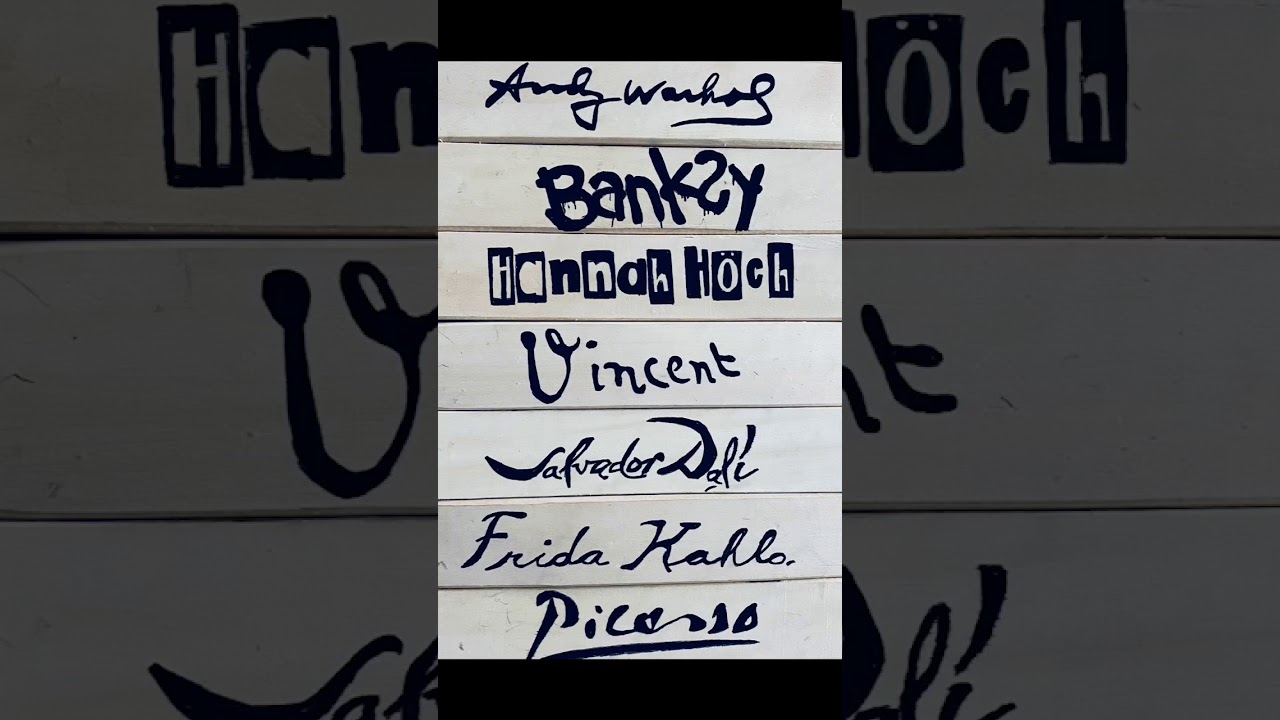 Andy Warhol
Banksy
Hannah Höch
Vincent
Salvador Dalí
Frida Kahlo.
Picasso